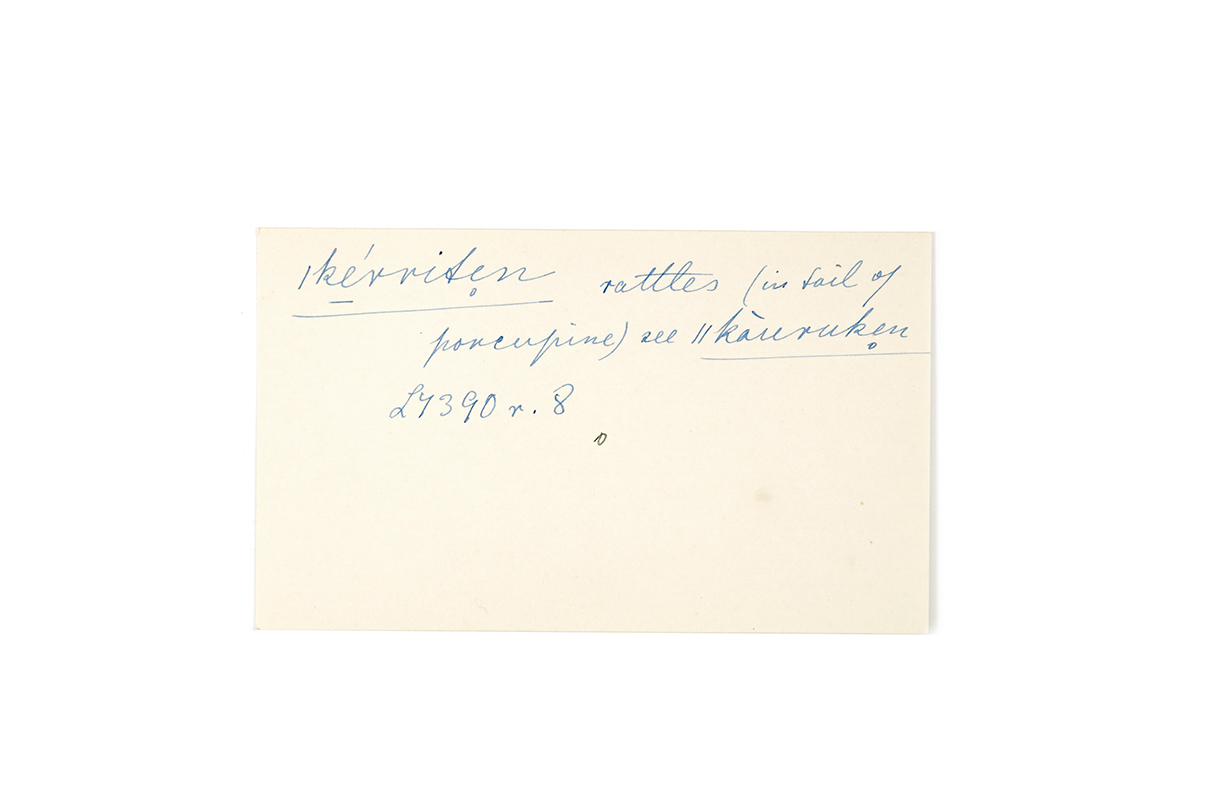 ǀk̲érriten̥ rattles (in tail of
porcupine) see ǁkàuruken̥
L7390 r. 8
D